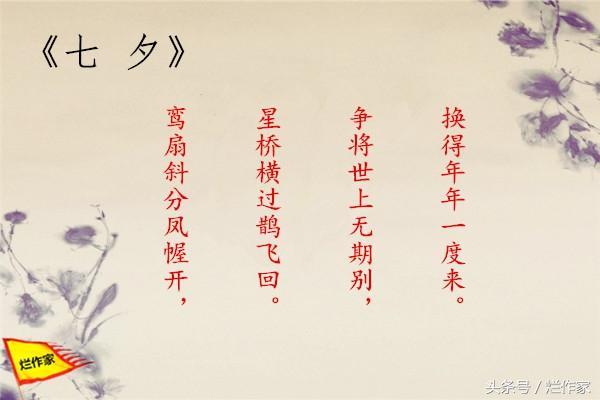 《七 夕》
鸾扇斜分凤幄开，
星桥横过鹊飞回。
争将世上无期别，
换得年年一度来。
烂作家
头条号／烂作家